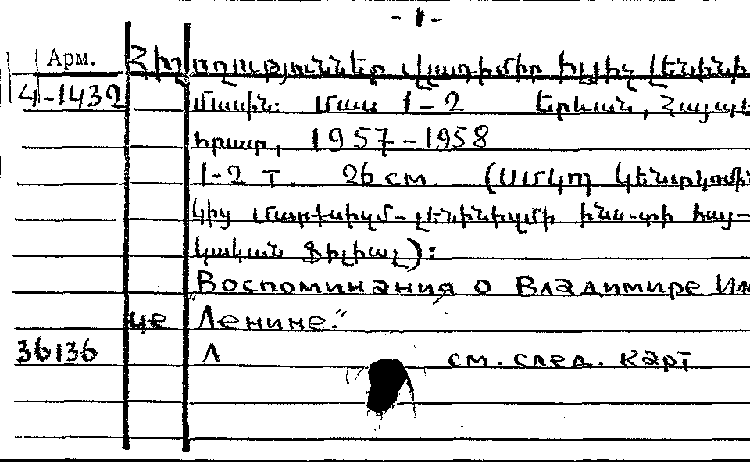 - 1 -
Арм. Հիշողություններ Վլադիմիր Իլյիչ Լենինի
4-1432 մասին: Մաս 1-2 Երևան, Հայպետ
հրատ, 1957-1958
1-2 т. 26 см (ՍՄԿԿ կենտկոմին
կից մարքսիզմ-լենինիզմի ինս-տի հայ-
կական ֆիլիալ):
„Воспоминания о Владимире Иль
че Ленине."
36136 Л см. след. карт